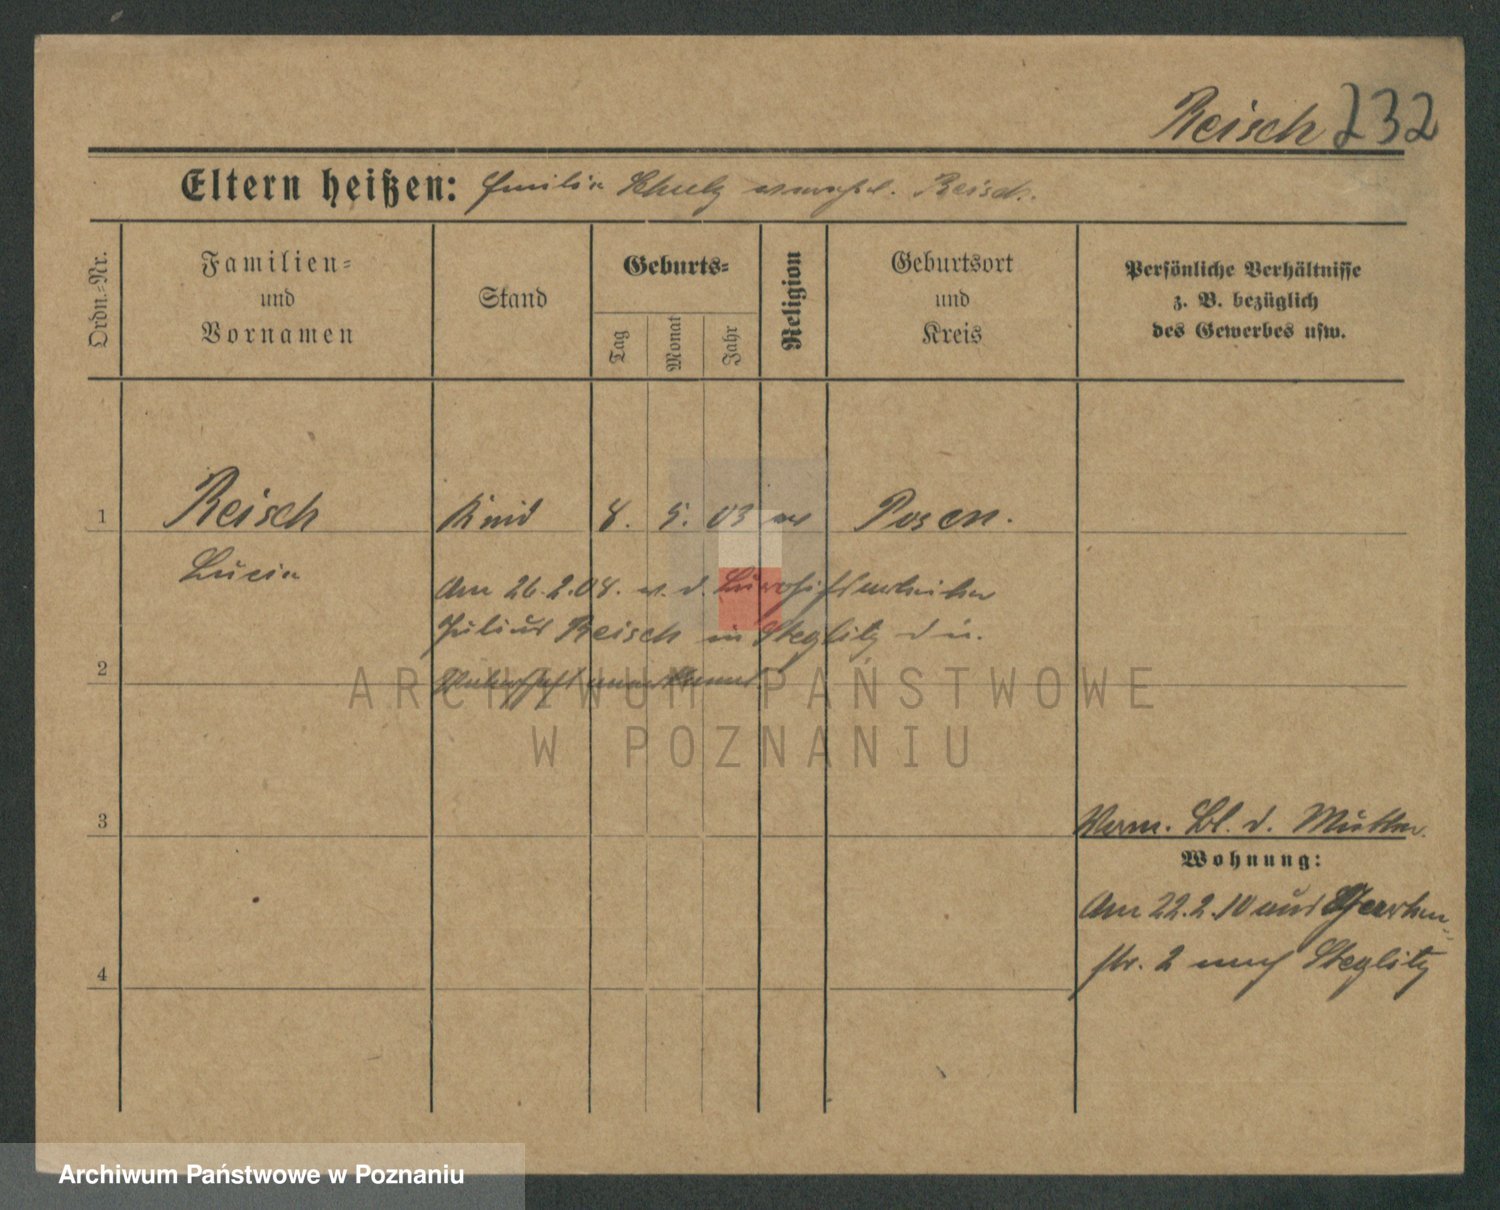 Reisch 232
Eltern heißen: Emilie Schulz verehel. Reisch.
Ordn.=Nr.
Familien=
und
Vornamen
Stand
Geburts=
Tag
Monat
Jahr
Religion
Geburtsort
und
Kreis
Persönliche Verhältnisse
z. B. bezüglich
des Gewerbes usw.
1 Reisch Kind 8. 5. 03 Posen.
Lucie
Am 26.2.08. v. d.
Julius Reisch in Steglitz d.
2 Vaterschaft anerkannt
ARCHIWUM PAŃSTWOWE
W POZNANIU
3 Verm. Bl. d. Mutter.
Wohnung:
Am 22.2.10 aus
4 str. 2 nach Steglitz
Archiwum Państwowe w Poznaniu